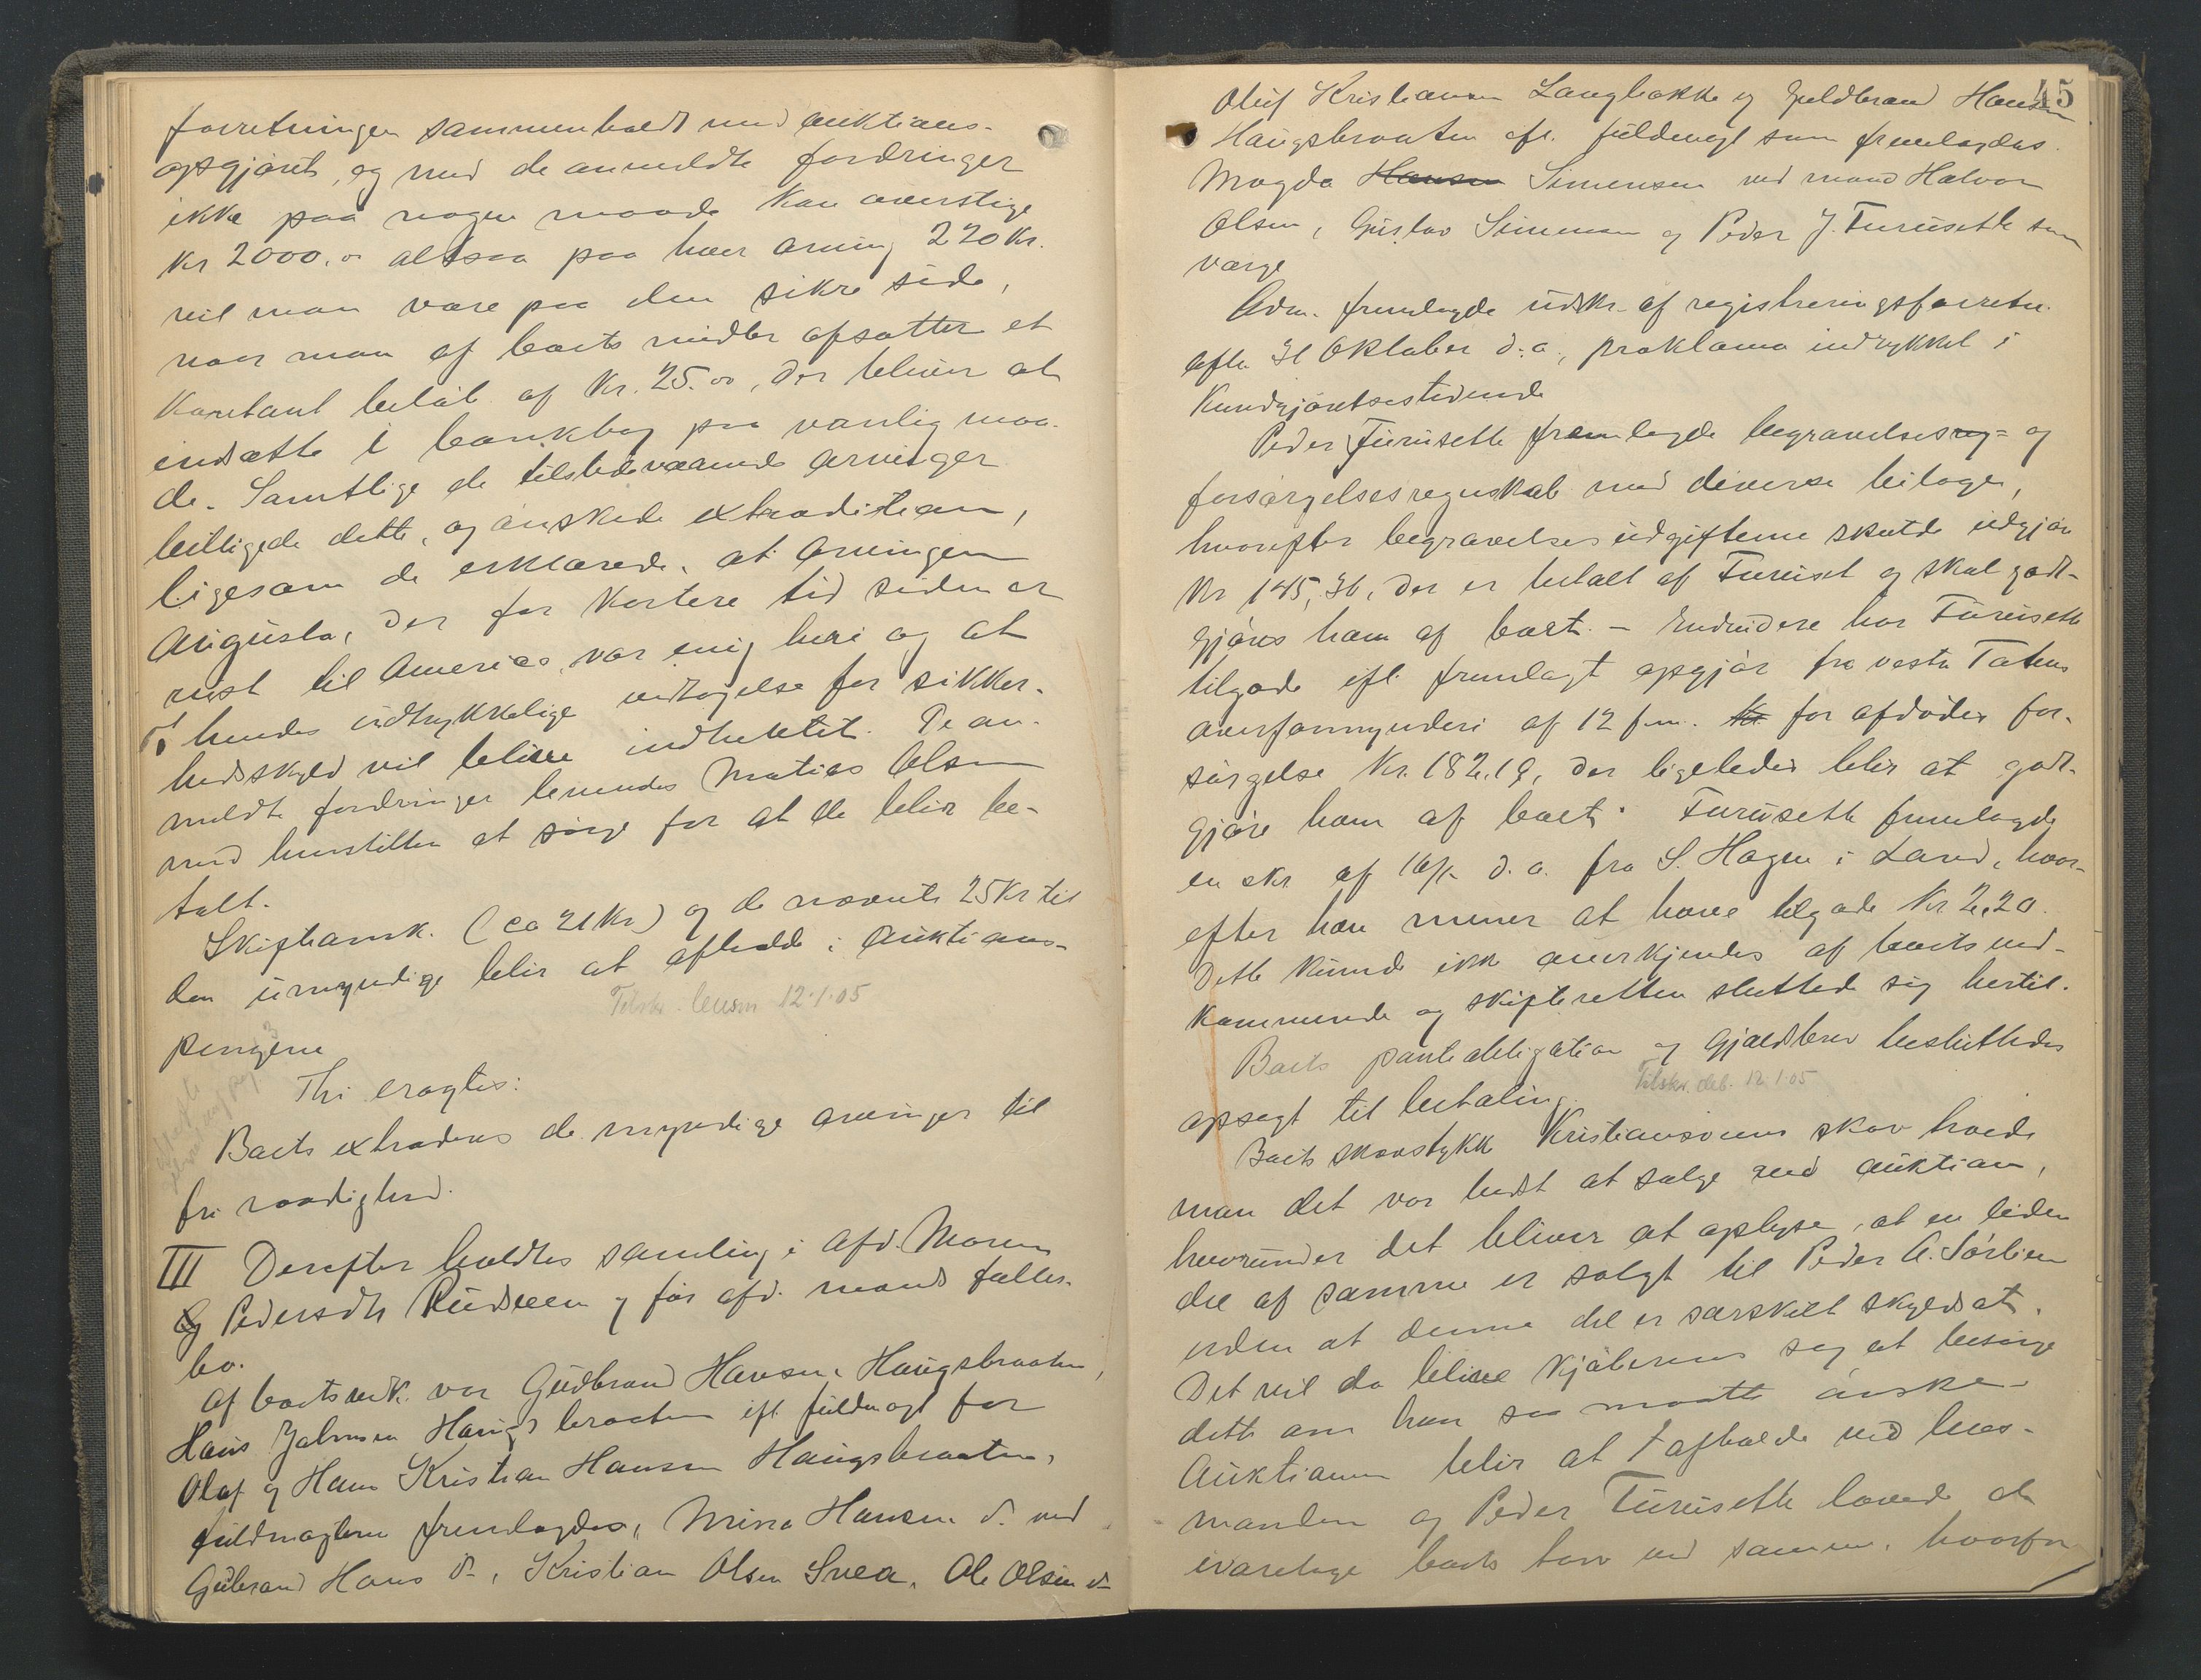 forretningen sammenholdt med auktions-
opgjøret, og med de anmeldte fordringer
ikke paa nogen maade kan overstige
Kr 2000.00 altsaa paa hver arving 220 Kr.
vil man være paa den sikre side,
naar man af boets midler afsætter et
kontant beløb af Kr. 25.00, der bliver at
indsætte i bankbog paa vanlig maa-
de. Samtlige de tilstedeværende arvinger
billigede dette, og ønskede extradition,
ligesom de erklærede, at arvingen
Augusta, der for kortere tid siden er
reist til Amerika, var enig heri og at
hendes udtrykkelige vedtagelse for sikker-
hedsskyld vil blive indhentet. De an-
meldte fordringer leveredes Matias Olsen
med henstillen at sørge for at de blir be-
talt.
Skifteomk. (ca 21 Kr) og de nævnte 25 Kr til
den umyndige blir at afholde i auktions-
Tilskr. lensm 12.1.05
pengene
Thi eragtes:
Boets extraderes de myndige arvinger til
fri raadighed.
III Derefter holdtes samling i afd. Maren
Pedersdtr Rudseen og før afd. mands fælles-
bo.
Af boets vedk. var Gudbrand Hansen Haugsbraaten,
Hans Johnsen Haugsbraaten ifl fuldmagt for
Olaf og Hans Kristian Hansen Haugsbraaten,
fuldmagterne fremlagdes, Mina Hansen d. ved
Gulbrand Hans d., Kristian Olsen Svea, Ole Olsen d
45
Oluf Kristiansen Langbakke og Guldbrand Hansen
Haugsbraaten efl. fuldmagt som fremlagdes.
Magda Hansen Simensen ved mand Halvor
Olsen, Gustav Simensen og Peder J. Furusette som
værge
Adm. fremlagde udskr. af registreringsforretn.
afh. 31 Oktober d.a., proklama indrykket i
Kundgjørelsestidende
Peder Furusette fremlagde begravelsesreg= og
forsørgelsesregnskab med diverse bilage,
hvorefter begravelsesudgifterne skulde udgjøre
Kr 145,36, der er betalt af Furuset og skal godt-
gjøres ham af boet. – Endvidere har Furusette
tilgode ifl. fremlagt opgjør fra vestre Totens
overformynderi af 12 f.m. Kr for afdødes for-
sørgelse Kr. 182.19, der ligeledes blir at godt-
gjøre ham af boet. Furusette fremlagde
en skr af d.a. fra S. Hagen i Land, hvor-
efter han mener at have tilgode Kr 2,20.
Dette kunde ikke anerkjendes af boets ved-
kommende og skifteretten sluttede sig hertil.
Boets panteobligation og gjældsbrev besluttedes
Tilskr. deb. 12.1.05
opsagt til betaling.
Boets skovstykke Kristiansvens skov troede
man det var bedst at sælge ved auktion,
hvorunder det bliver at oplyse, at en liden
del af samme er solgt til Peder A. Sørlien
uden at denne del er særskilt skyldsat.
Det vil da blive kjøberens sag at besørge
dette om han saa maatte ønske.
Auktionen blir at afholde ved lens-
manden og Peder Furusette lovede at
ivaretage boets tarv ved samme, hvorfor